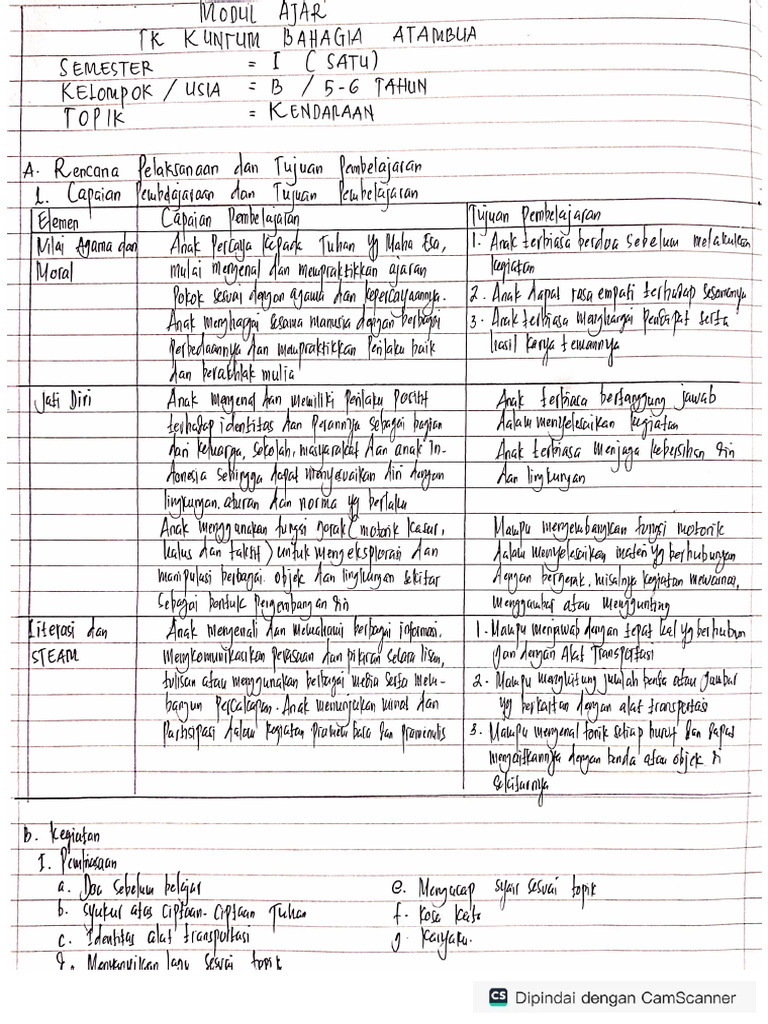 MODUL AJAR
TK KUNTUM BAHAGIA ATAMBUA
SEMESTER = I (SATU)
KELOMPOK / USIA = B / 5-6 TAHUN
TOPIK = KENDARAAN
A. Rencana Pelaksanaan dan Tujuan Pembelajaran
1. Capaian Pembelajaraan dan Tujuan Pembelajaran
Elemen
Capaian Pembelajaran
Tujuan Pembelajaran
Nilai Agama dan
Moral
Anak Percaya kepada Tuhan Yg Maha Esa,
mulai mengenal dan mempraktikkan ajaran
Pokok sesuai dengan agama dan kepercayaannya.
Anak menghargai sesama manusia dengan berbagai
Perbedaannya dan mempraktikkan Perilaku baik
dan berakhlak mulia
1. Anak terbiasa berdoa sebelum melakukan
kegiatan
2. Anak dapat rasa empati terhadap sesamanya
3. Anak terbiasa menghargai pendapat serta
hasil karya temannya
Jati Diri
Anak mengenal dan memiliki Perilaku Positif
terhadap identitas dan Perannya sebagai bagian
dari keluarga, sekolah, masyarakat dan anak In-
donesia sehingga dapat menyesuaikan diri dengan
lingkungan, aturan dan norma yg berlaku
Anak menggunakan fungsi gerak (motorik kasar,
halus dan taktil) untuk mengeksplorasi dan
manipulasi berbagai objek dan lingkungan sekitar
Sebagai bentuk Pengembangan diri
Anak terbiasa bertanggung jawab
dalam menyelesaikan kegiatan
Anak terbiasa menjaga kebersihan diri
dan lingkungan
Mampu mengembangkan fungsi motorik
dalam menyelesaikan materi yg berhubungan
dengan bergerak, misalnya kegiatan mewarnai,
menggambar atau menggunting
Literasi dan
STEAM
Anak mengenali dan memahami berbagai informasi,
mengkomunikasikan perasaan dan pikiran secara lisan,
tulisan atau menggunakan berbagai media serta mem-
bangun Percakapan. Anak menunjukan minat dan
Partisipasi dalam kegiatan pramembaca dan pramenulis
1. Mampu menjawab dengan tepat hal yg berhubun
gan dengan Alat Transportasi
2. Mampu menghitung jumlah benda atau gambar
yg berkaitan dengan alat transportasi
3. Mampu mengenal setiap huruf dan dapat
mengaitkannya dengan benda atau objek di
sekitarnya
B. Kegiatan
I. Pembiasaan
a. Doa sebelum belajar
b. syukur atas ciptaan-ciptaan Tuhan
c. Identitas alat transportasi
d. Menyanyikan lagu sesuai topik
e. Mengucap syair sesuai topik
f. Kosa kata
g. Karyaku.
CS Dipindai dengan CamScanner